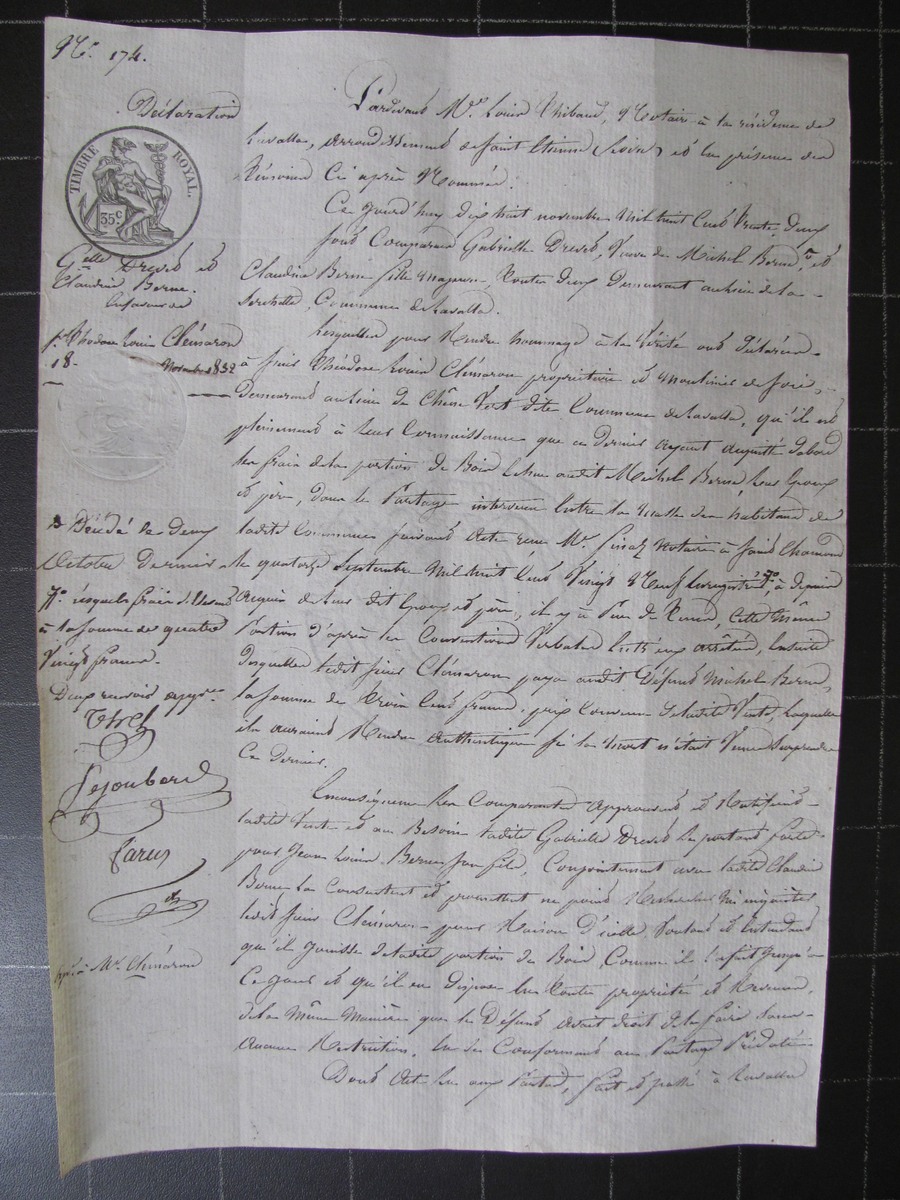 N.o 174.
Déclaration
TIMBRE ROYAL.
35 c
G.elle Drevet et
Claudine Berne.
en faveur de
s.r Théodore Louis Clémaron
18. Novembre 1832
Pardevant M.e Louis Thibaud, Notaire à la résidence de
Lavalla, arrondissement de Saint Etienne Loire, et en présence des
témoins Ci après Nommés.
Ce Jourd'huy dix huit novembre Mil huit Cent Trente deux
sont Comparues Gabrielle Drevet, Veuve de Michel Berne, et
Claudine Berne fille majeure, toutes deux Demeurant au lieu de la
Commune de Lavalla.
Lesquelles pour Rendre hommage à la Vérité ont déclaré
à sieur Théodore Louis Clémaron propriétaire et moulinier de soie,
Demeurant au lieu de Chêne Vert dite Commune de Lavalla, qu'il est
pleinement à leur Connaissance que ce dernier ayant acquitté d'abord
les frais de la portion de Bois échue audit Michel Berne, leur Epoux
et père, dans le Partage intervenu entre la masse des habitans de
ladite Commune suivant acte reçu M.e Finaz Notaire à Saint Chamond
le quatorze Septembre Mil huit Cent Vingt Neuf enregistré, a depuis
acquis de leur dit Epoux et père, il y a Peu de Tems, Cette même
Portion d'après les Conventions Verbales entr'eux arrêtées, ensuite
desquelles ledit sieur Clémaron paya audit Défunt Michel Berne,
la somme de Trois Cent francs, prix Convenu de ladite Vente, laquelle
ils auraient Rendue Authentique si la mort n'était Venue Surprendre
Ce Dernier.
En conséquence les Comparantes Approuvent et Ratifient
ladite Vente et au Besoin ladite Gabrielle Drevet se portant forte
pour Jean Louis Berne son fils, Conjointement avec ladite Claudine
Berne la Consentent et promettent ne point Rechercher Ni inquiéter
ledit sieur Clémaron pour Raison d'icelle Voulant et Entendant
qu'il Jouisse de ladite portion de Bois, Comme il l'a fait Jusqu'à
Ce Jour et qu'il en Dispose en toute propriété et Revenu,
de la Même Manière que le Défunt avait droit de le faire sans
aucune Restriction, en se Conformant au Partage Prédaté.
Dont Acte lu aux Parties, fait et passé à Lavalla
Décédé le deux
Octobre dernier
lesquels frais s'élevent
à la somme de quatre
Vingt francs.
Deux renvois app.és
à M.r Clémaron